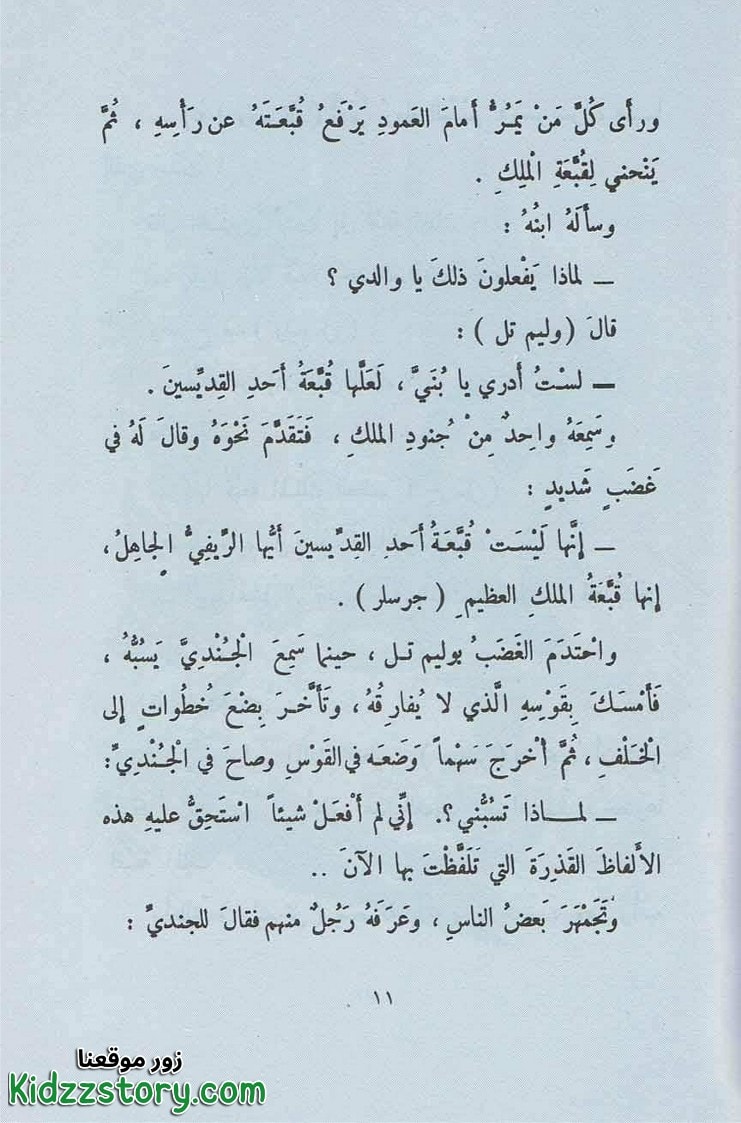 ورأَى كُلَّ مَنْ يَمُرُّ أمامَ العَمودِ يَرْفَعُ قُبَّعَتَهُ عن رَأْسِهِ ، ثُمَّ
يَنْحني لِقُبَّعَةِ الْملِكِ .
وسأَلَهُ ابنُهُ :
ــ لماذا يَفْعلونَ ذلكَ يا والدي ؟
قالَ ( وليم تل ) :
ــ لسْتُ أدري يا بُنَيَّ ، لَعَلَّها قُبَّعَةُ أَحَدِ القِدِّيسينَ .
وسَمِعَهُ واحِدٌ مِنْ جُنودِ الملكِ ، فَتَقَدَّمَ نَحْوَهُ وقالَ لَهُ في
غَضَبٍ شَديدٍ :
ــ إنَّها لَيْسَتْ قُبَّعَةُ أَحدِ القِدِّيسينَ أيُّها الرِّيفِيُّ الجاهِلُ ،
إنها قُبَّعَةُ الملكِ العظيمِ ( جرسلر ) .
واحْتَدَمَ الغَضَبُ بوليم تل ، حينما سَمِعَ الْجُنْدِيَّ يَسُبُّهُ ،
فَأَمْسَكَ بِقَوْسِهِ الَّذي لا يُفارِقُهُ ، وتَأَخَّرَ بِضْعَ خُطُواتٍ إلى
الْخَلْفِ ، ثُمَّ أخْرجَ سَهْماً وَضَعَه في القَوْسِ وصاحَ في الْجُنْدِيِّ :
ــ لمــاذا تَسُبُّني ؟. إنِّي لم أفْعَلْ شيئاً اسْتَحِقُّ عليهِ هذه
الألفاظَ القَذِرَةَ التي تَلَفَّظْتَ بها الآنَ ..
وتَجَمْهَرَ بَعضُ الناسِ ، وعَرَفَهُ رَجُلٌ منهم فقالَ للجنديِّ :
١١
زور موقعنا
Kidzzstory.com